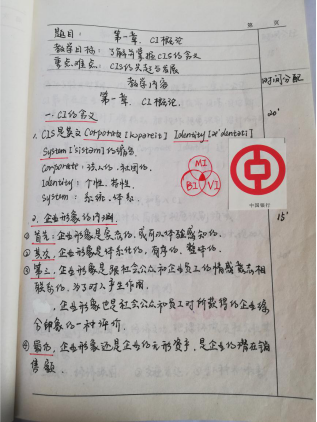 第 页
题目: 第一章. CI概论
教学目标: 了解与掌握CIS的含义
重点难点: CIS的兴起与发展
教学内容
时间分配
第一章. CI概论.
一. CI的含义
20'
1. CIS是英文 Corporate Identity
System ['sistəm] 的缩写.
Corporate: 法人的. 社团的.
Identity: 个性. 特性.
System: 系统. 体系.
MI
BI VI
中国银行
2. 企业形象的
15'
① 首先: 企业形象是客观的, 或可以感知的.
② 其次, 企业形象是体系化的, 有序的. 整体的.
③ 第三, 企业形象是跟社会公众和企业员工的情感意志相
联系的, 为了对人产生作用.
企业形象也是社会公众和员工对所获得的企业综
合印象的一种评价.
④ 最后, 企业形象还是企业的无形资产, 是企业的潜在销
售额.